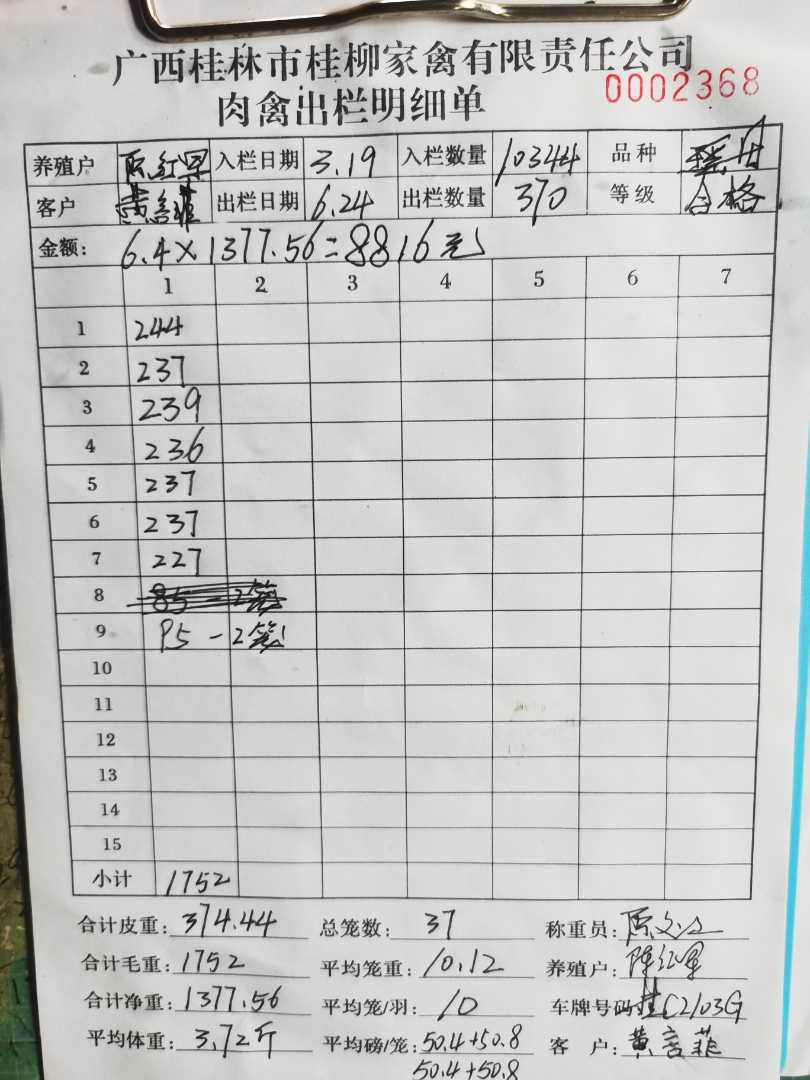 广西桂林市桂柳家禽有限责任公司
肉禽出栏明细单 0002368
养殖户 陈红军 入栏日期 3.19 入栏数量 10344 品种
客户 黄言菲 出栏日期 6.24 出栏数量 370 等级 合格
金额: 6.4×1377.56=8816元
1 2 3 4 5 6 7
1 244
2 237
3 239
4 236
5 237
6 237
7 227
8 85-2笼
9 95-2笼
10
11
12
13
14
15
小计 1752
合计皮重: 374.44 总笼数: 37 称重员:
合计毛重: 1752 平均笼重: 10.12 养殖户: 陈红军
合计净重: 1377.56 平均笼/羽: 10 车牌号码 桂C2103G
平均体重: 3.72斤 平均磅/笼: 50.4+50.8 客户: 黄言菲
50.4+50.8